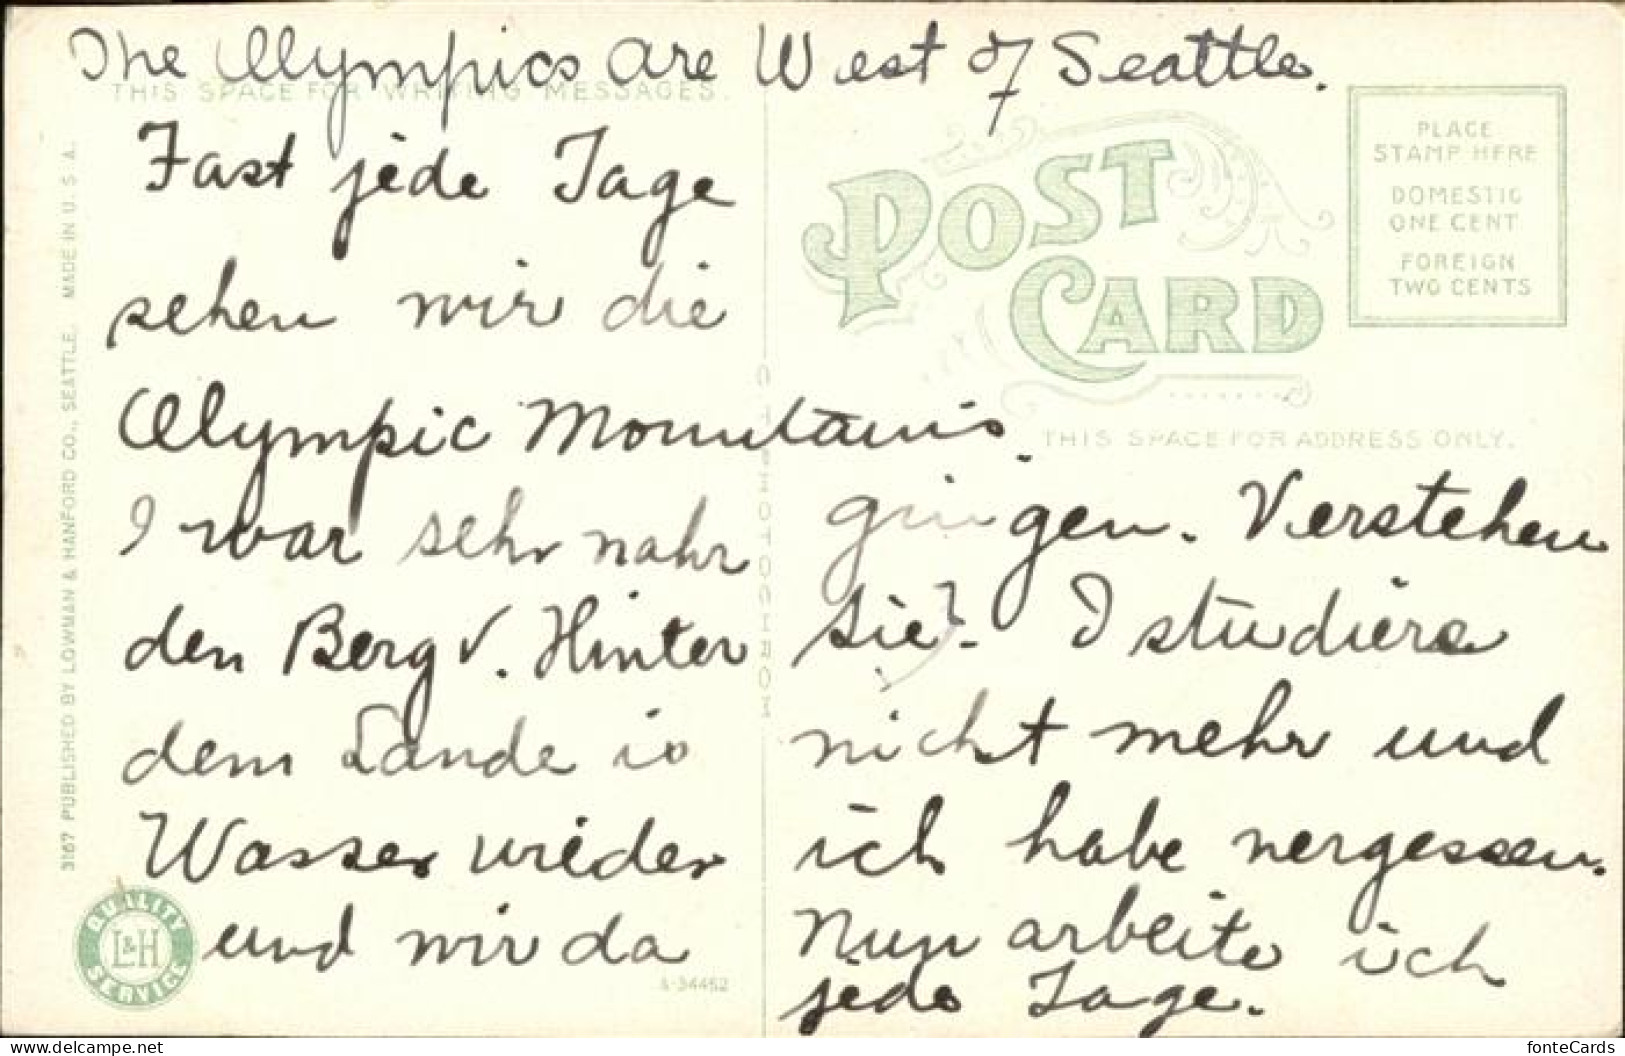 The Olympics are West of Seattle.
THIS SPACE FOR WRITING MESSAGES.
Fast jede Tage
sehen wir die
Olympic Mountains.
I war sehr nahr
den Berg v. Hinter
dem Lande is
Wasser wieder
und wir da
gingen. Verstehen
sie? I studiere
nicht mehr und
ich habe vergessen.
Nun arbeite ich
jede Tage.
POST CARD
THIS SPACE FOR ADDRESS ONLY.
PLACE
STAMP HERE
DOMESTIC
ONE CENT
FOREIGN
TWO CENTS
3167 PUBLISHED BY LOWMAN & HANFORD CO., SEATTLE. MADE IN U.S.A.
QUALITY
L&H
SERVICE
A-34452
fonteCards